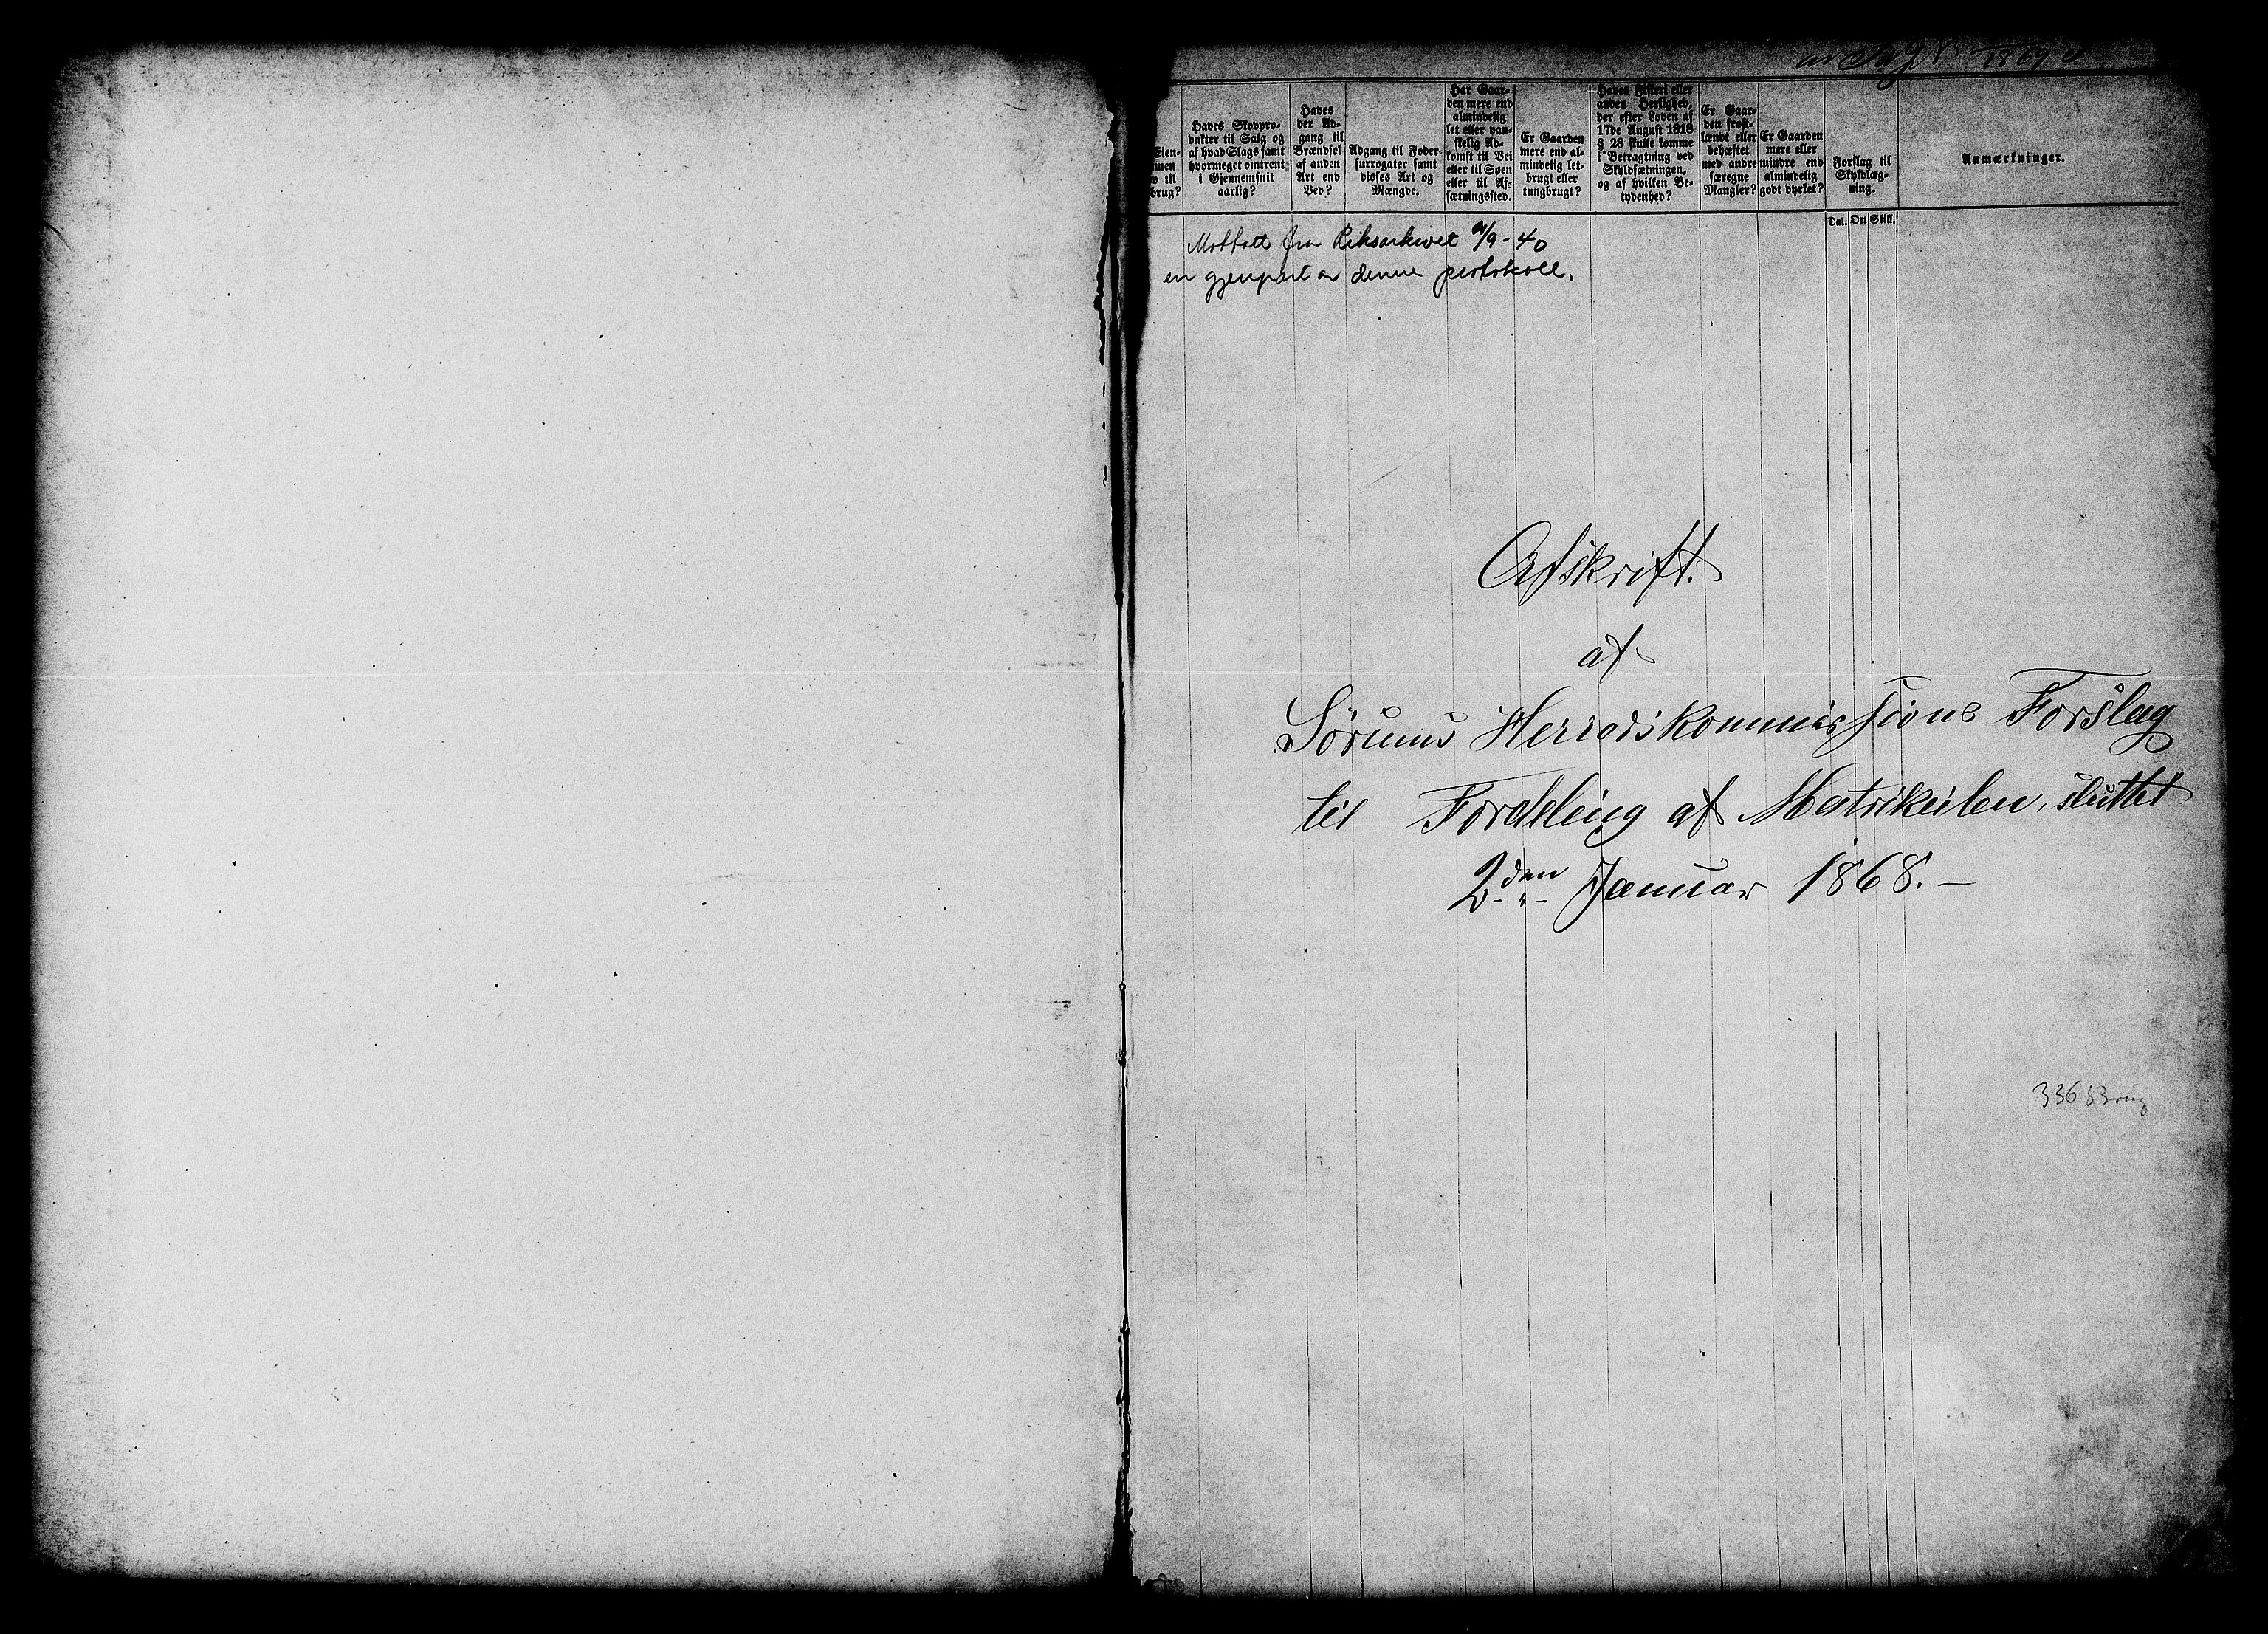 Eien-
men
v til
brug?
Haves Skovpro-
dukter til Salg og
af hvad Slags samt
hvormeget omtrent
i Gjennemsnit
aarlig?
Haves
der Ad-
gang til
Brændsel
af anden
Art end
Ved?
Adgang til Foder-
surrogater samt
disses Art og
Mængde.
Har Gaar-
den mere end
almindelig
let eller van-
skelig Ad-
komst til Vei
eller til Søen
eller til Af-
sætningssted.
Er Gaarden
mere end al-
mindelig let-
brugt eller
tungbrugt?
Haves Fiskeri eller
anden Herlighed,
der efter Loven af
17de August 1818
§ 28 skulle komme
i Betragtning ved
Skyldsætningen,
og af hvilken Be-
tydenhed?
Er Gaar-
den frost-
lændt eller
behæftet
med andre
særegne
Mangler?
Er Gaarden
mere eller
mindre end
almindelig
godt dyrket?
Forslag til
Skyldlæg-
ning.
Dal. Ort Skill.
Anmærkninger.
Mottatt fra Riksarkivet /9-40
en gjenpart av denne protokoll.
Afskrift.
af
Sørums Herredskommissions Forslag
til Fordeling af Matrikulen, sluttet
2den Januar 1868. —
336 Brug